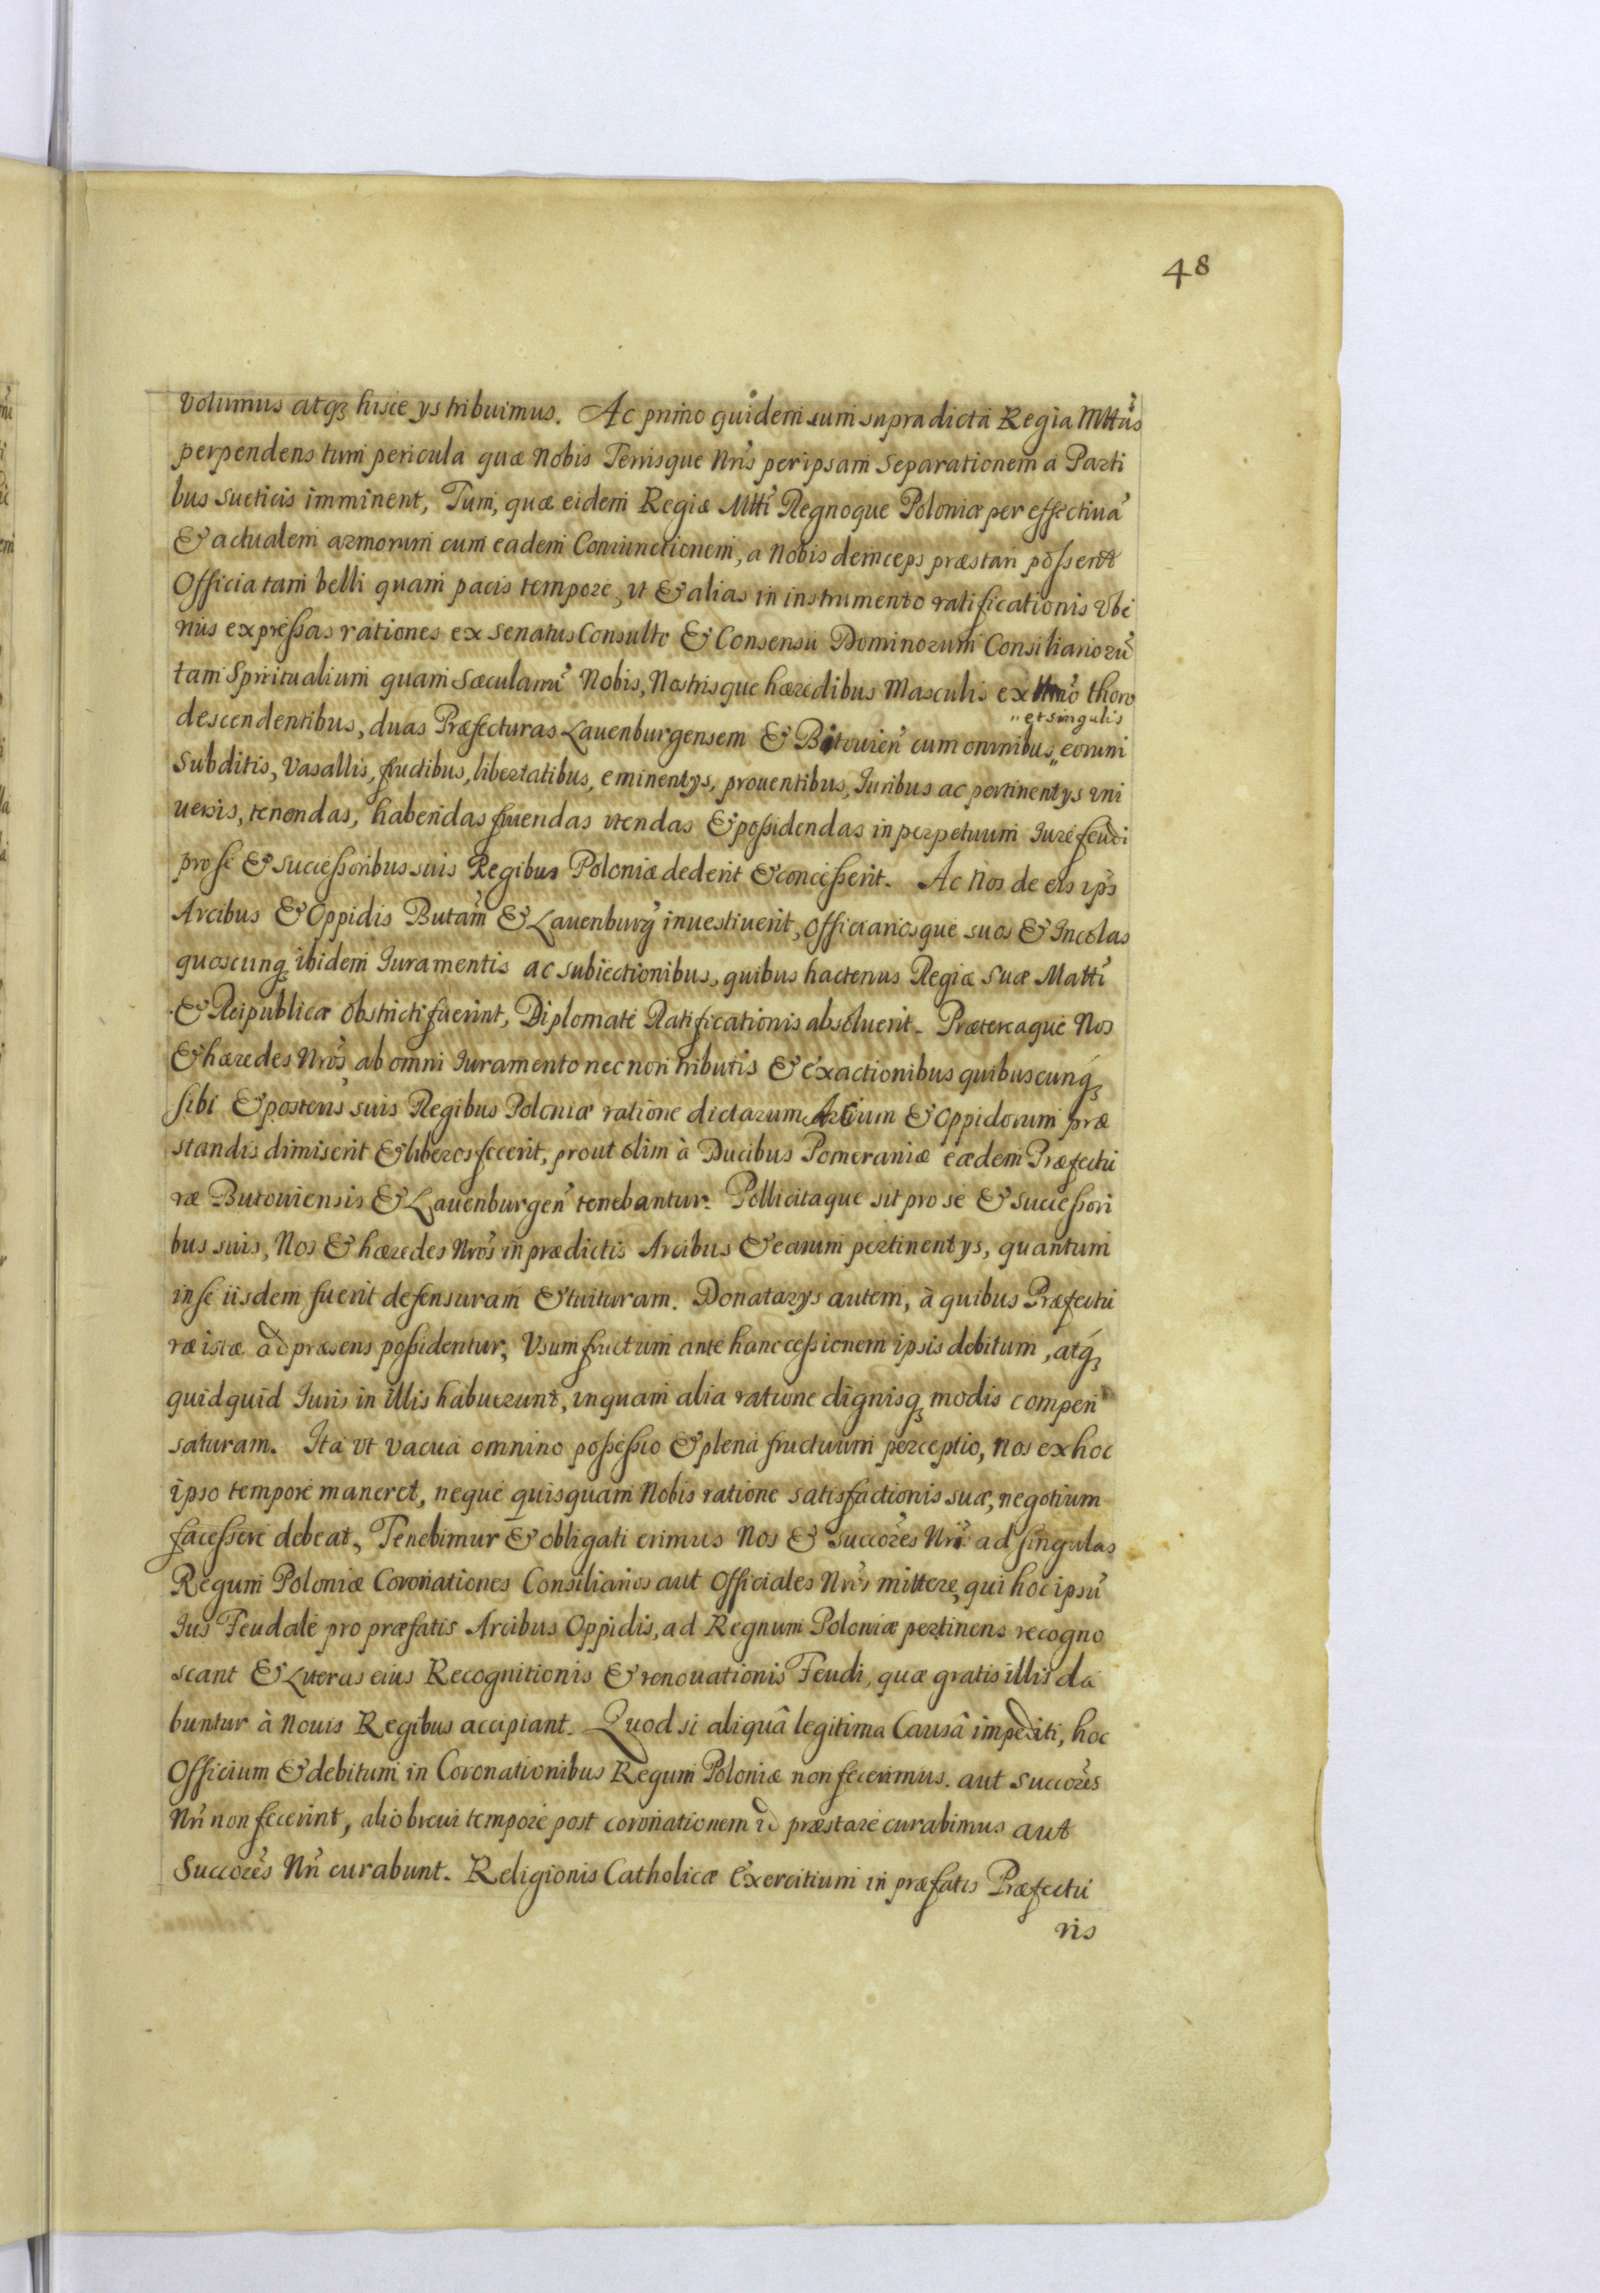 48
Volumus atq3 hisce ys tribuimus. Ac primo quidem cum supradicta Regia Mttus
perpendens tum pericula quæ Nobis Terrisque Nris per ipsam separationem a Parti
bus Sueticis imminent, Tum, quæ eidem Regiæ Mtti Regnoque Poloniæ per effectiuã
& actualem armorum cum eadem Coniunctionem, a Nobis deinceps præstari possent
Officia tam belli quam pacis tempore, vt & alias in instrumento ratificationis vbe
rius expressas rationes ex Senatus Consulto & Consensu Dominorum Consiliariorũ
tam Spiritualium quam Sæculariũ Nobis, Nostrisque hæredibus Masculis ex thoro
descendentibus, duas Præfecturas Lauenburgensem & Bitouien cum omnibus „ eorum
„ et singulis
Subditis, Vasallis, fructibus, libertatibus, eminentys, prouentibus, Iuribus ac pertinentys vni
uersis, tenendas, habendas fruendas vtendas & possidendas in perpetuum Iure feudi
pro se & successoribus suis Regibus Poloniæ dederit & concesserit. Ac Nos de eis ips
Arcibus & Oppidis Butam & Lauenburg inuestiuerit, Officiariosque suos & Incolas
quoscunq ibidem Iuramentis ac subiectionibus, quibus hactenus Regiæ Suæ Matti
& Reipublicæ obstricti fuerint, Diplomate Ratificationis absoluerit. Prætereaque Nos
& hæredes Nros ab omni Iuramento nec non tributis & exactionibus quibuscunq
sibi & posteris suis Regibus Poloniæ ratione dictarum Arcium & Oppidorum præ
standis dimiserit & liberos fecerit, prout olim à Ducibus Pomeraniæ eædem Præfectu
ræ Butouiensis & Lauenburgen tenebantur. Pollicitaque sit pro se & successori
bus suis, Nos & hæredes Nros in prædictis Arcibus & earum pertinentys, quantum
in se iisdem fuerit defensuram & tuituram. Donatarys autem, à quibus Præfectu
ræ istæ ad præsens possidentur, Vsumfructum ante hanc cessionem ipsis debitum, atq
quidquid Iuris in illis habuerunt, inquam alia ratione dignisq modis compen
saturam. Ita vt vacua omnino possessio & plena fructuum perceptio, Nos ex hoc
ipso tempore maneret, neque quisquam Nobis ratione satisfactionis suæ, negotium
facessere debeat, Tenebimur & obligati erimus Nos & Succores Nri ad singulas
Regum Poloniæ Coronationes Consiliarios aut Officiales Nros mittere, qui hoc ipsũ
Ius Feudale pro præfatis Arcibus Oppidis, ad Regnum Poloniæ pertinens recogno
scant & Literas eius Recognitionis & renouationis Feudi, quæ gratis illis da
buntur à Nouis Regibus accipiant. Quod si aliquâ legitima Causâ impediti, hoc
Officium & debitum in Coronationibus Regum Poloniæ non fecerimus. aut Succores
Nri non fecerint, alio breui tempore post coronationem id præstare curabimus aut
Succores Nri curabunt. Religionis Catholicæ Exercitium in præfatis Præfectu
ris